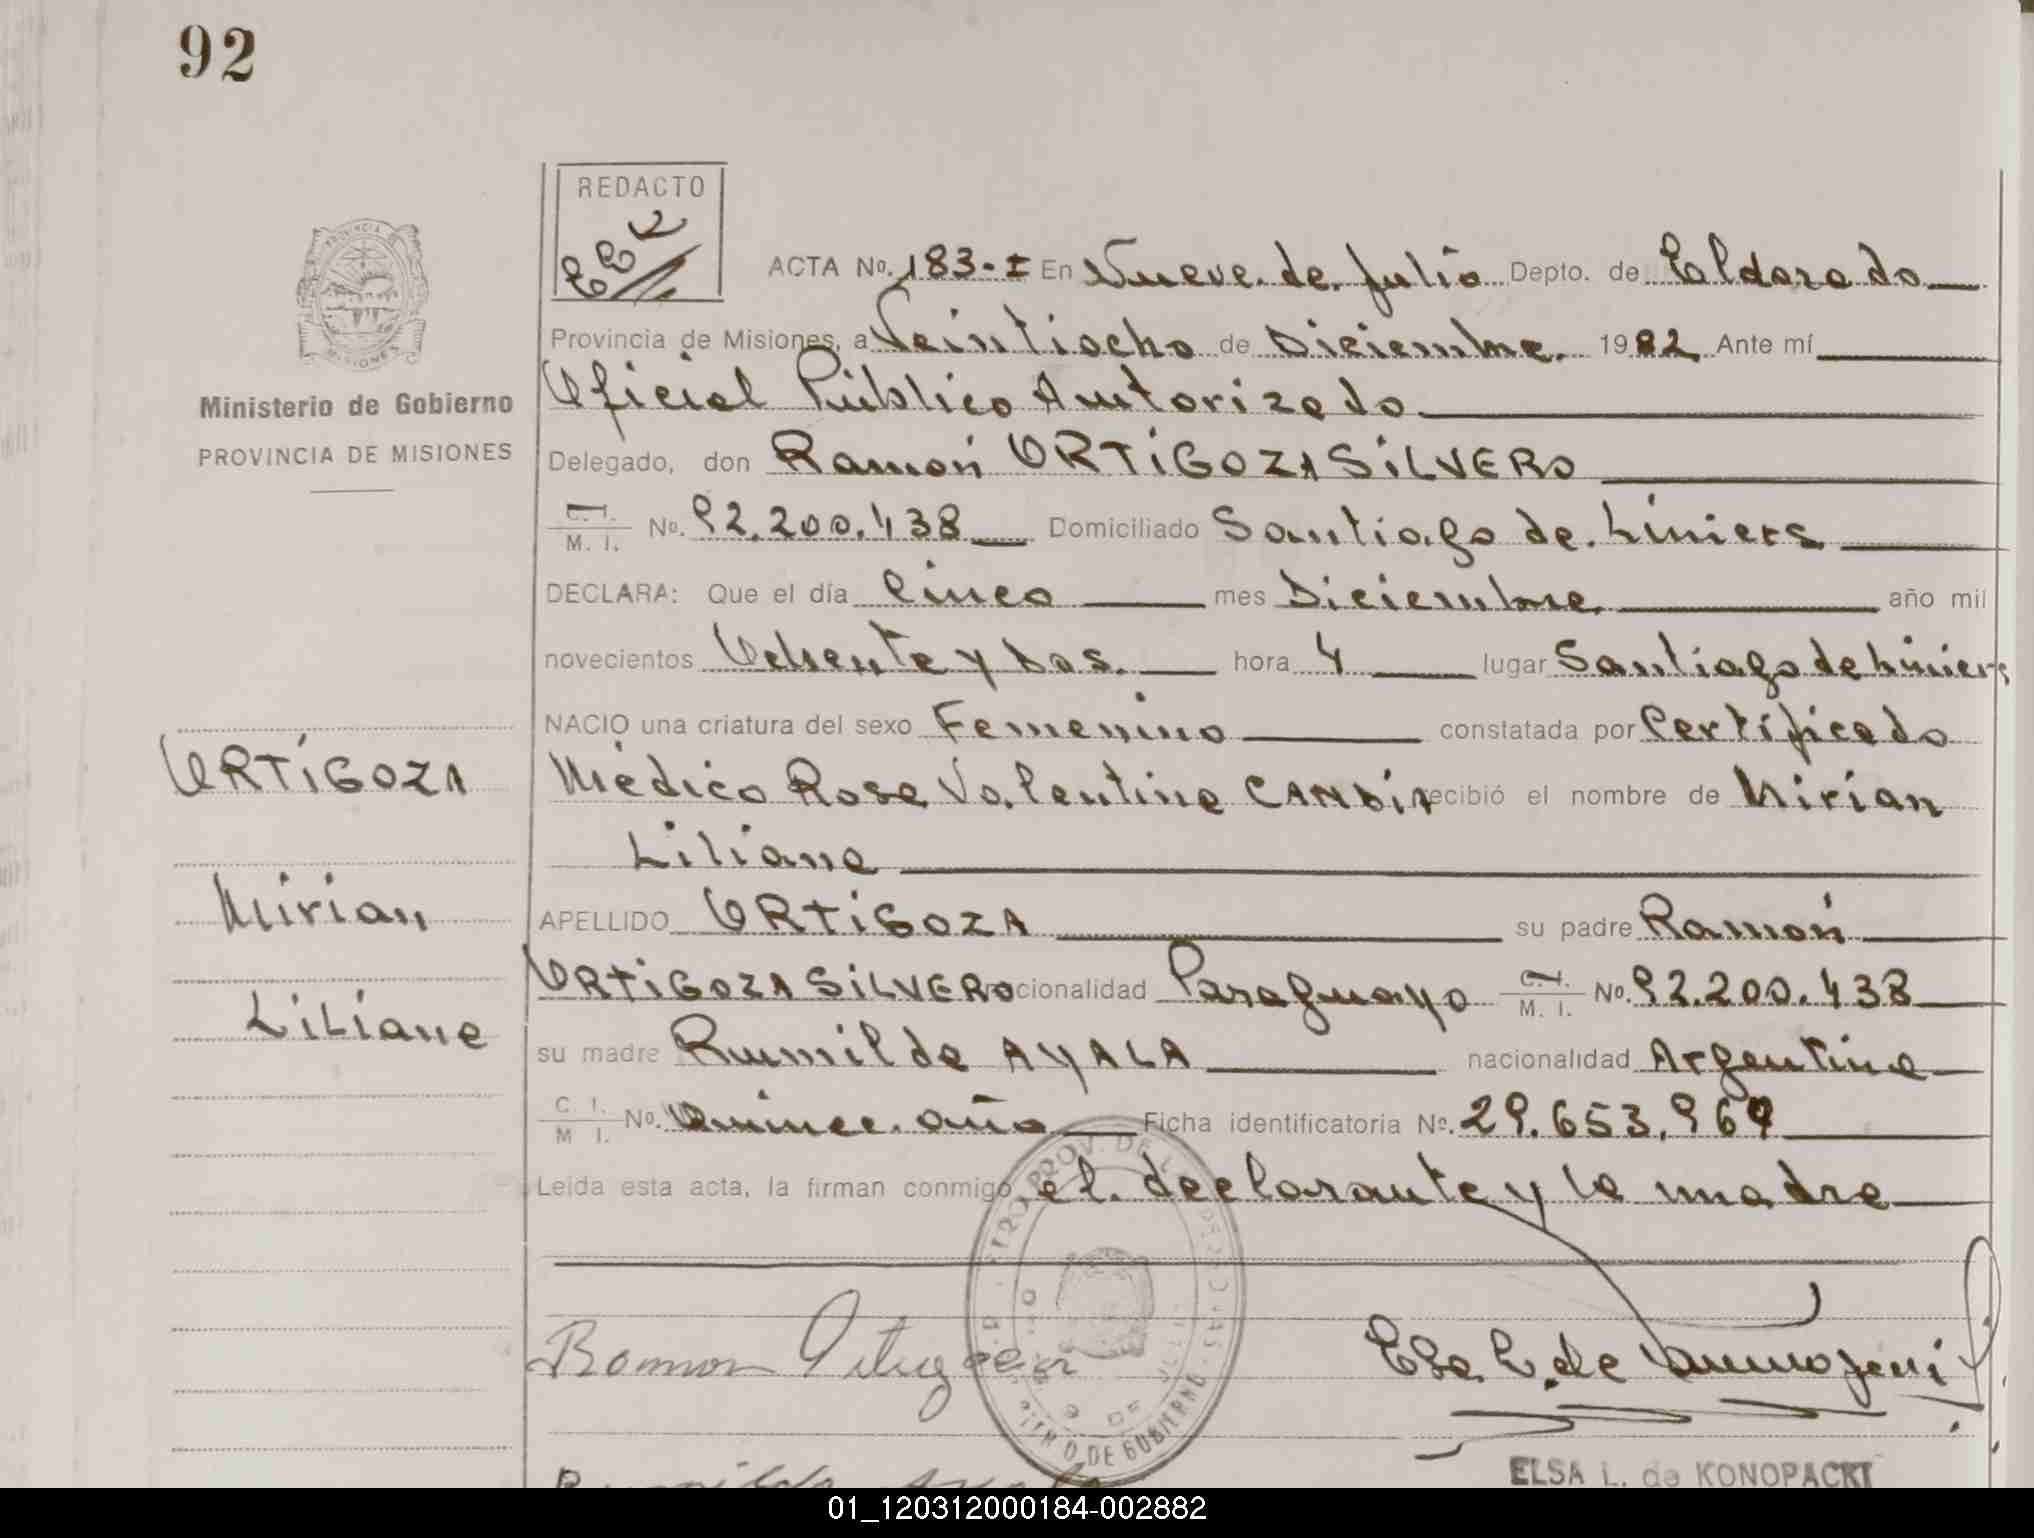 92
REDACTO
ACTA No. 183-I En Nueve de Julio Depto. de Eldorado
Provincia de Misiones, a Veintiocho de Diciembre 1982 Ante mí
Oficial Público Autorizado
Delegado, don Ramón ORTIGOZA SILVERO
C. I. / M. I. No. 92.200.438 Domiciliado Santiago de Liniers
DECLARA: Que el día Cinco mes Diciembre año mil
novecientos Ochenta y Dos hora 4 lugar Santiago de Liniers
NACIO una criatura del sexo Femenino constatada por Certificado
Médico Rosa Valentina CANDIA recibió el nombre de Mirian
Liliana
APELLIDO ORTIGOZA su padre Ramón
ORTIGOZA SILVERO nacionalidad Paraguayo C. I. / M. I. No. 92.200.438
su madre Rumilda AYALA nacionalidad Argentina
C. I. / M. I. No. Quince año Ficha identificatoria No. 29.653.969
Leída esta acta, la firman conmigo el declarante y la madre
PROVINCIA
MISIONES
Ministerio de Gobierno
PROVINCIA DE MISIONES
ORTIGOZA
Mirian
Liliana
DE GOBIERNO
ELSA L. de KONOPACKI
01_120312000184-002882